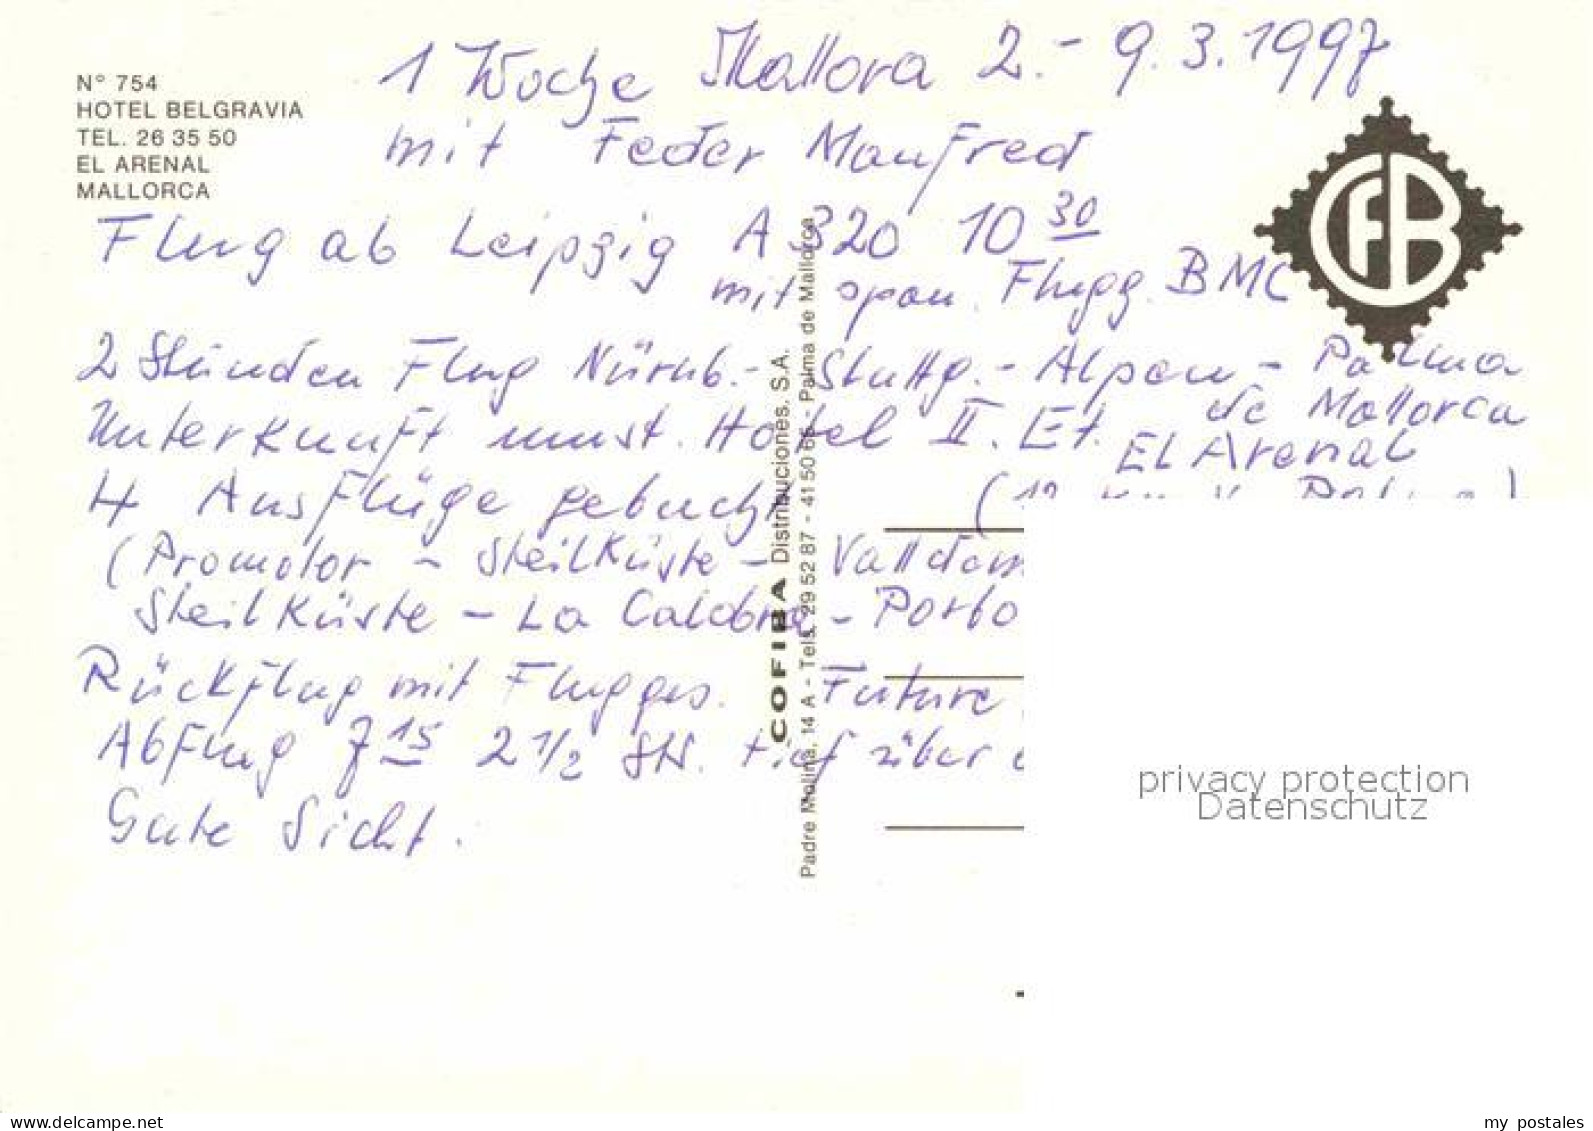 N° 754
HOTEL BELGRAVIA
TEL. 26 35 50
EL ARENAL
MALLORCA
1 Woche Mallora 2.-9.3.1997
mit Feder Manfred
Flug ab Leipzig A 320 10 30
mit span. Flugg. BMC
2 Stunden Flug Nürnb.- Stuttg.- Alpen - Palma
de Mallorca
Unterkunft umst. Hotel II. Et.
El Arenal
4 Ausflüge gebucht
(Promotor - Steilküste - Valldem
Steilküste - La Calobra - Porto
Rückflug mit Flugges. Future
Abflug 7 15 2 1/2 Std. tief über
Gute Sicht.
COFIBA Distribuciones, S.A.
Padre Molina, 14 A - Tels. 29 52 87 - 41 50 66 - Palma de Mallorca
CFB
privacy protection
Datenschutz
my_postales